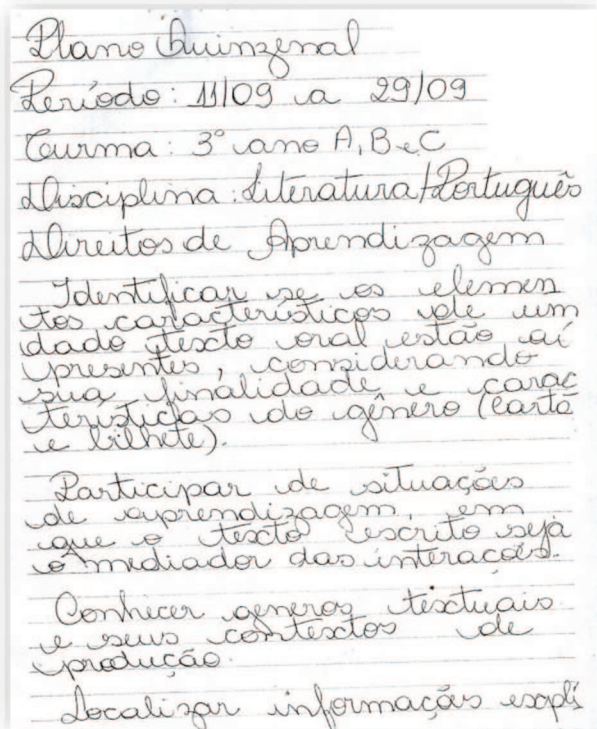 Plano Quinzenal
Período: 11/09 a 29/09
Turma: 3° ano A, B e C
Disciplina: Literatura/Português
Direitos de Aprendizagem
Identificar se os elemen
tos característicos de um
dado texto oral estão aí
presentes, considerando
sua finalidade e carac
terísticas do gênero (carta
e bilhete).
Participar de situações
de aprendizagem, em
que o texto escrito seja
o mediador das interações.
Conhecer gêneros textuais
e seus contextos de
produção.
Localizar informações explí